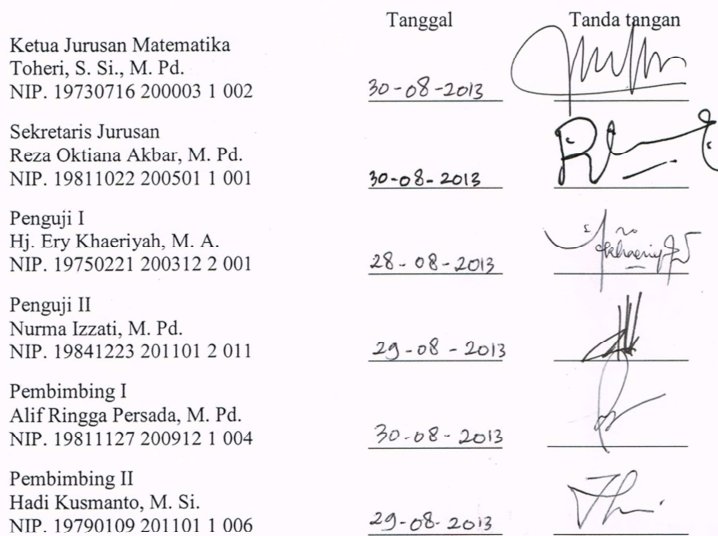 Tanggal Tanda tangan
Ketua Jurusan Matematika
Toheri, S. Si., M. Pd.
NIP. 19730716 200003 1 002 30-08-2013
Sekretaris Jurusan
Reza Oktiana Akbar, M. Pd.
NIP. 19811022 200501 1 001 30-08-2013
Penguji I
Hj. Ery Khaeriyah, M. A.
NIP. 19750221 200312 2 001 28-08-2013
Penguji II
Nurma Izzati, M. Pd.
NIP. 19841223 201101 2 011 29-08-2013
Pembimbing I
Alif Ringga Persada, M. Pd.
NIP. 19811127 200912 1 004 30-08-2013
Pembimbing II
Hadi Kusmanto, M. Si.
NIP. 19790109 201101 1 006 29-08-2013